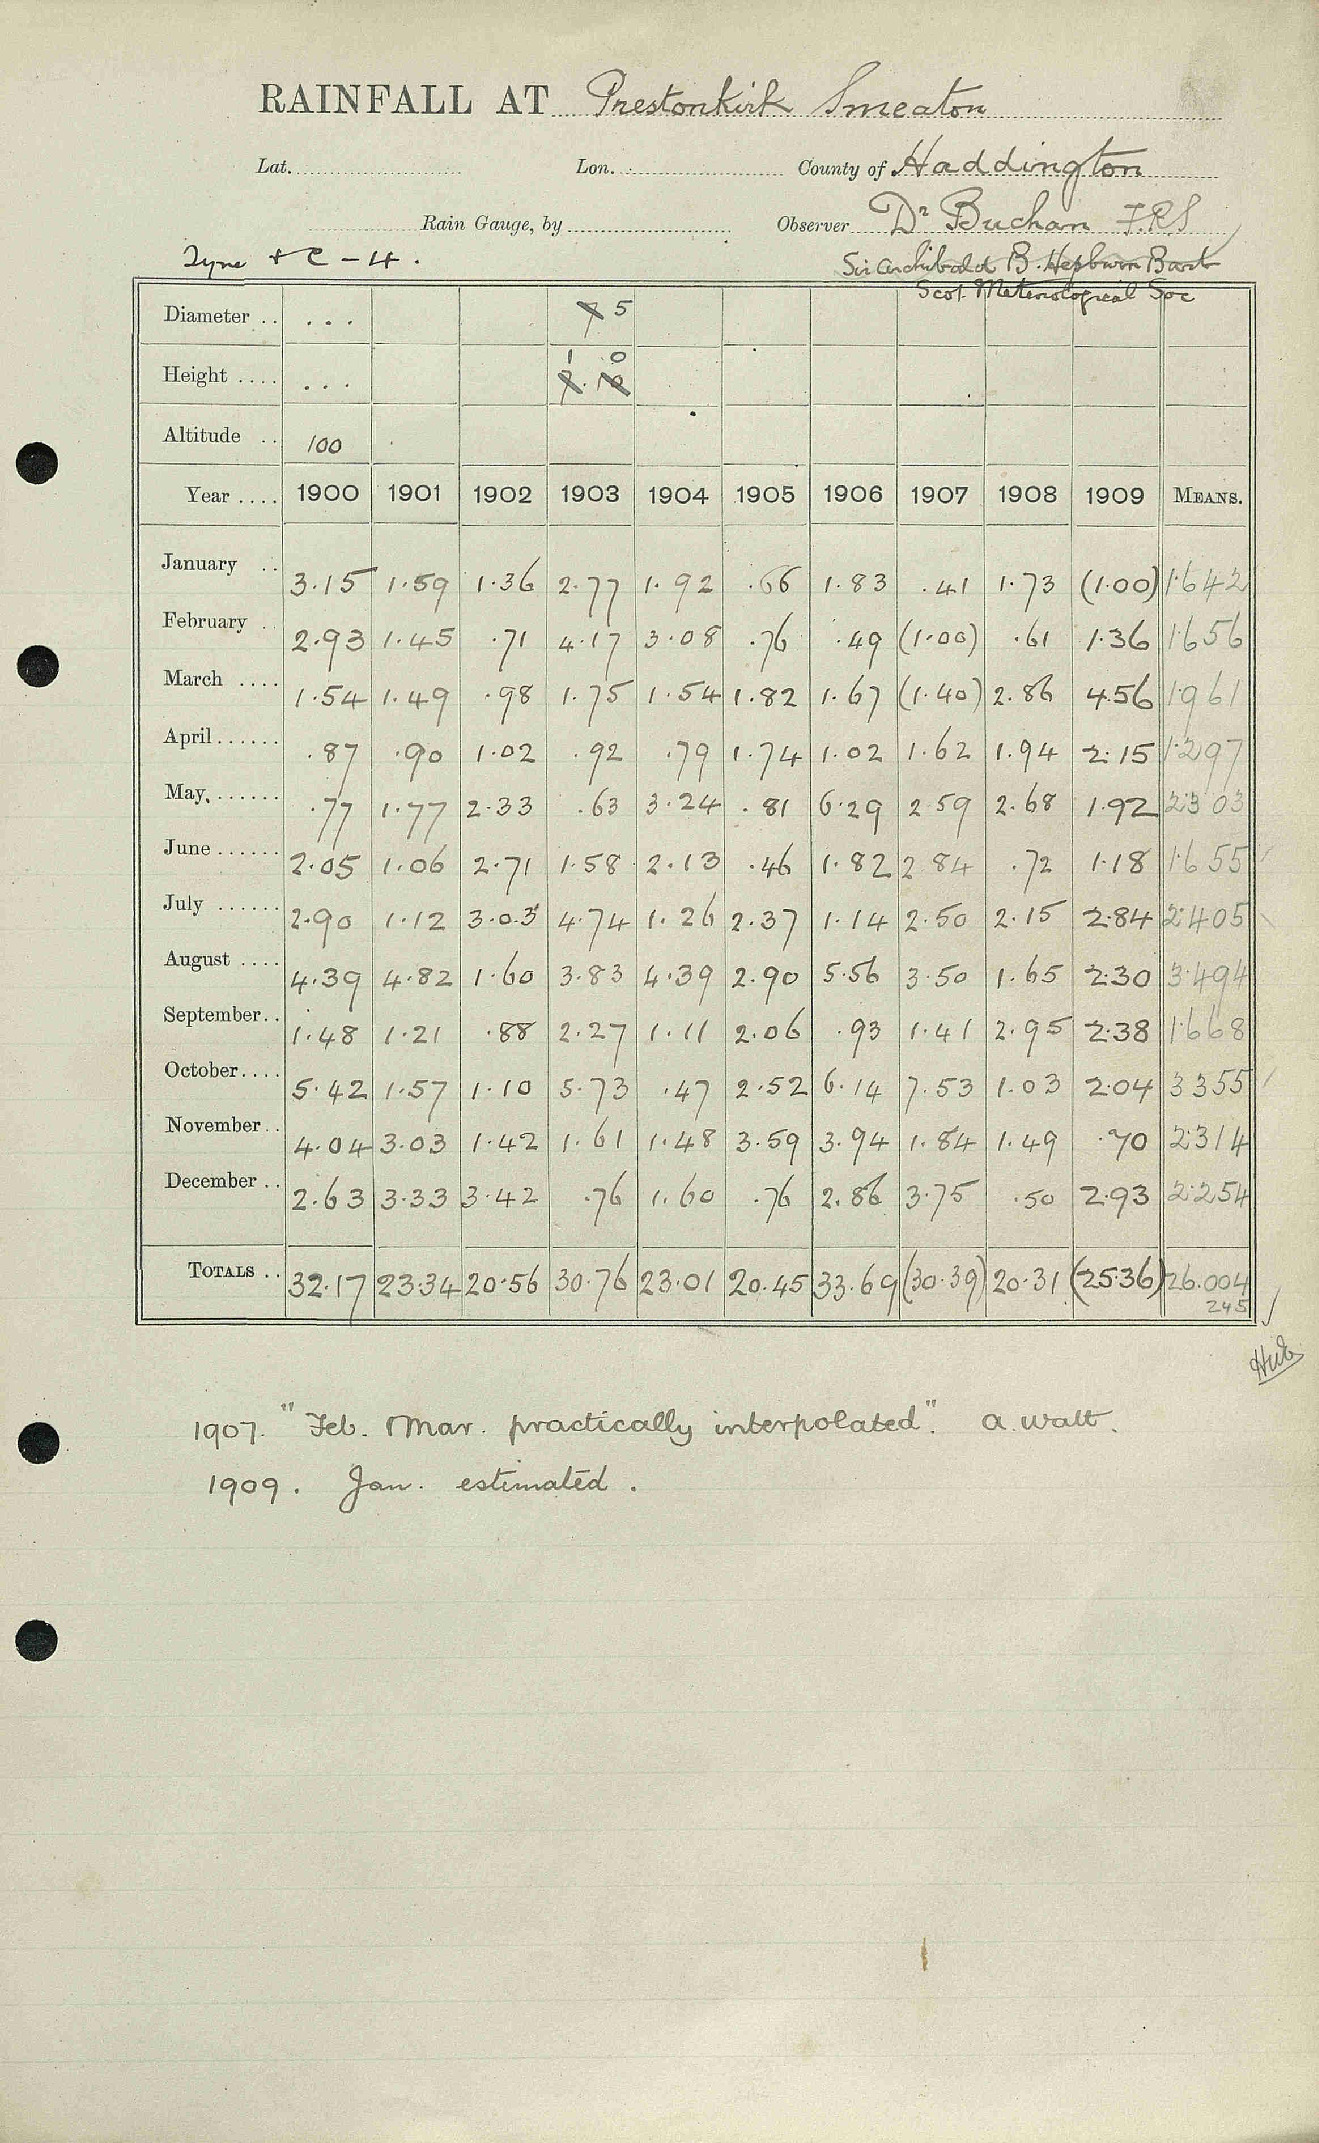 RAINFALL AT Prestonkirk Smeaton
Lat. Lon. County of Haddington
Rain Gauge, by Observer Dr Buchan F.R.S
Tyne + C - 4.
Sir Archibald B. Hepburn Bart
Scot. Meterological Soc
Diameter .. ... 7 5
1 0
Height .... ... 7. 10
Altitude .. 100
Year .... 1900 1901 1902 1903 1904 1905 1906 1907 1908 1909 MEANS.
January .. 3.15 1.59 1.36 2.77 1.92 .66 1.83 .41 1.73 (1.00) 1.642
February . 2.93 1.45 .71 4.17 3.08 .76 .49 (1.00) .61 1.36 1.656
March .... 1.54 1.49 .98 1.75 1.54 1.82 1.67 (1.40) 2.86 4.56 1.961
April ...... .87 .90 1.02 .92 .79 1.74 1.02 1.62 1.94 2.15 1.297
May. ...... .77 1.77 2.33 .63 3.24 .81 6.29 2.59 2.68 1.92 2.303
June ...... 2.05 1.06 2.71 1.58 2.13 .46 1.82 2.84 .72 1.18 1.655
July ...... 2.90 1.12 3.03 4.74 1.26 2.37 1.14 2.50 2.15 2.84 2.405
August .... 4.39 4.82 1.60 3.83 4.39 2.90 5.56 3.50 1.65 2.30 3.494
September .. 1.48 1.21 .88 2.27 1.11 2.06 .93 1.41 2.95 2.38 1.668
October .... 5.42 1.57 1.10 5.73 .47 2.52 6.14 7.53 1.03 2.04 3.355
November .. 4.04 3.03 1.42 1.61 1.48 3.59 3.94 1.84 1.49 .70 2.314
December .. 2.63 3.33 3.42 .76 1.60 .76 2.86 3.75 .50 2.93 2.254
TOTALS .. 32.17 23.34 20.56 30.76 23.01 20.45 33.69 (30.39) 20.31 (25.36) 26.004
245
1907. "Feb. & Mar. practically interpolated". A. Watt.
1909. Jan. estimated.